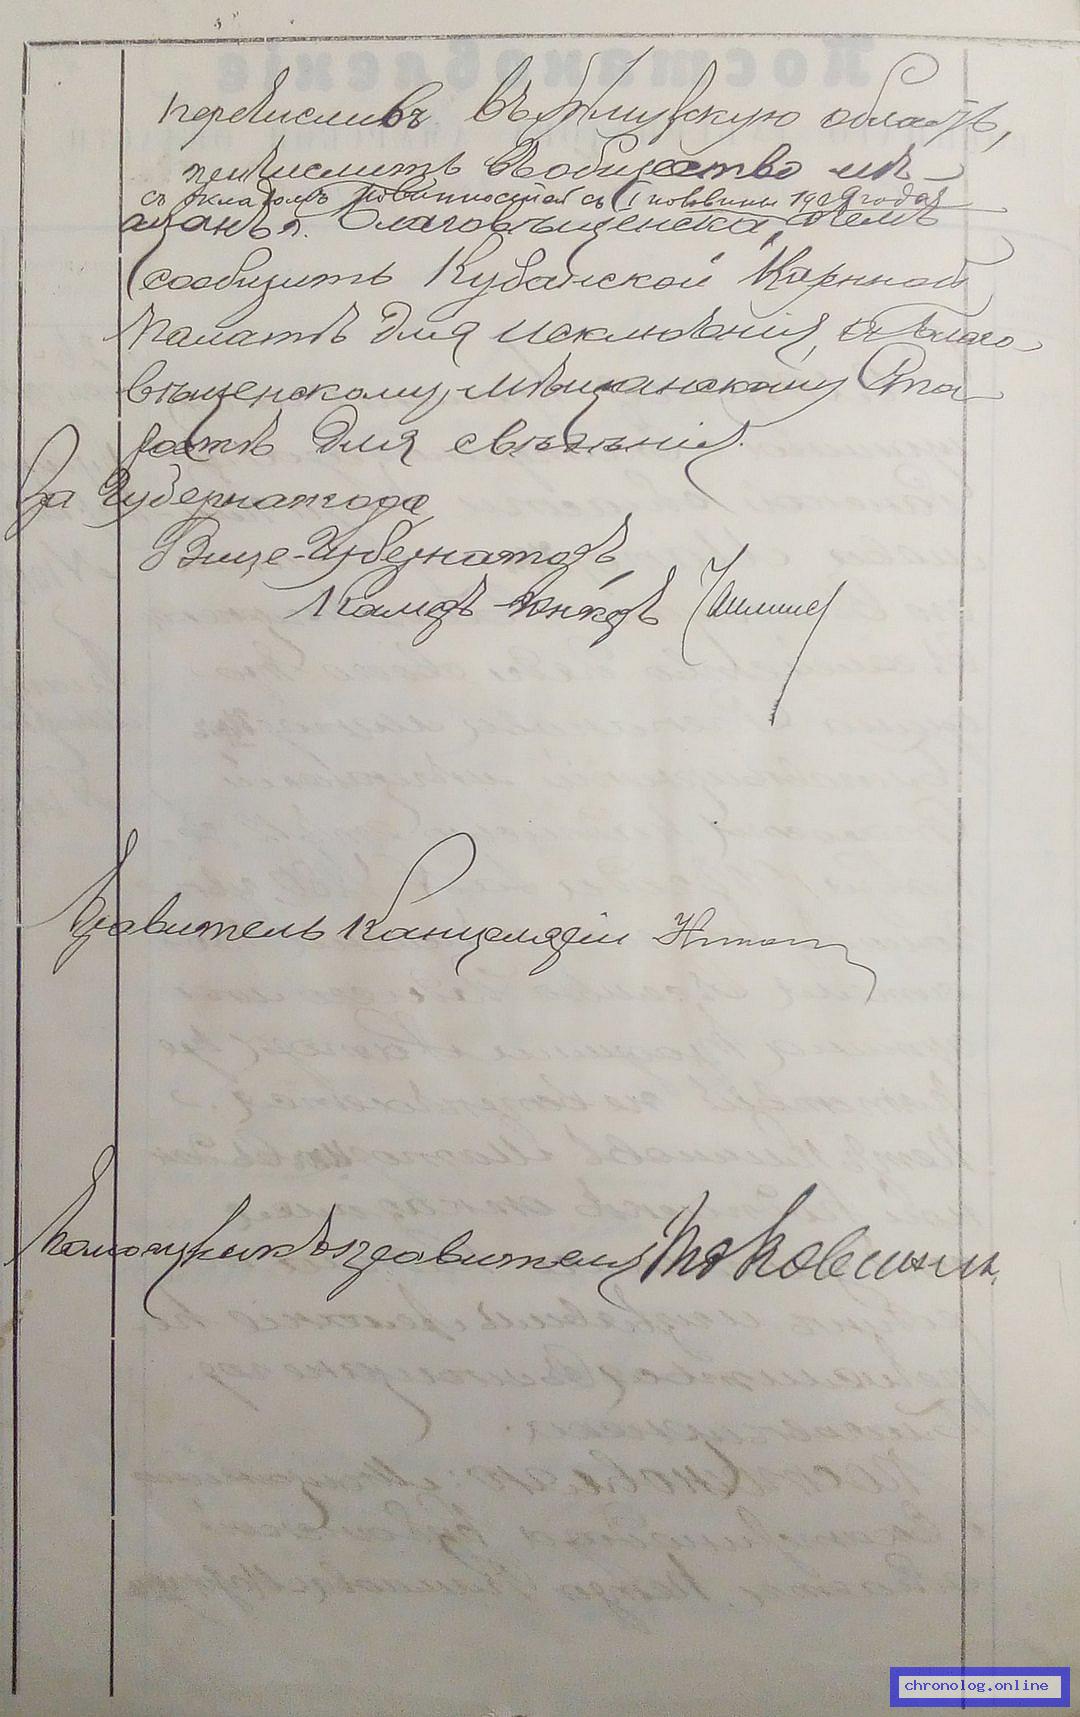 перечисливъ въ Амурскую область,
причислить въ общество мѣ-
съ окладомъ повинностей съ I половины 1909 года
щанъ г. Благовѣщенска, о чемъ
сообщить Кубанской Казенной
Палатѣ для исключенія, а Благо-
вѣщенскому Мѣщанскому Ста-
ростѣ для свѣдѣнія.
За Губернатора,
Вице-Губернаторъ,
Камеръ-Юнкеръ
Правитель Канцеляріи
Помощникъ Правителя
chronolog.online